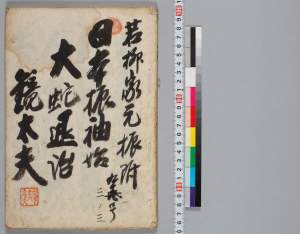 若柳家元振附
日本振袖始
大蛇退治
鏡太夫